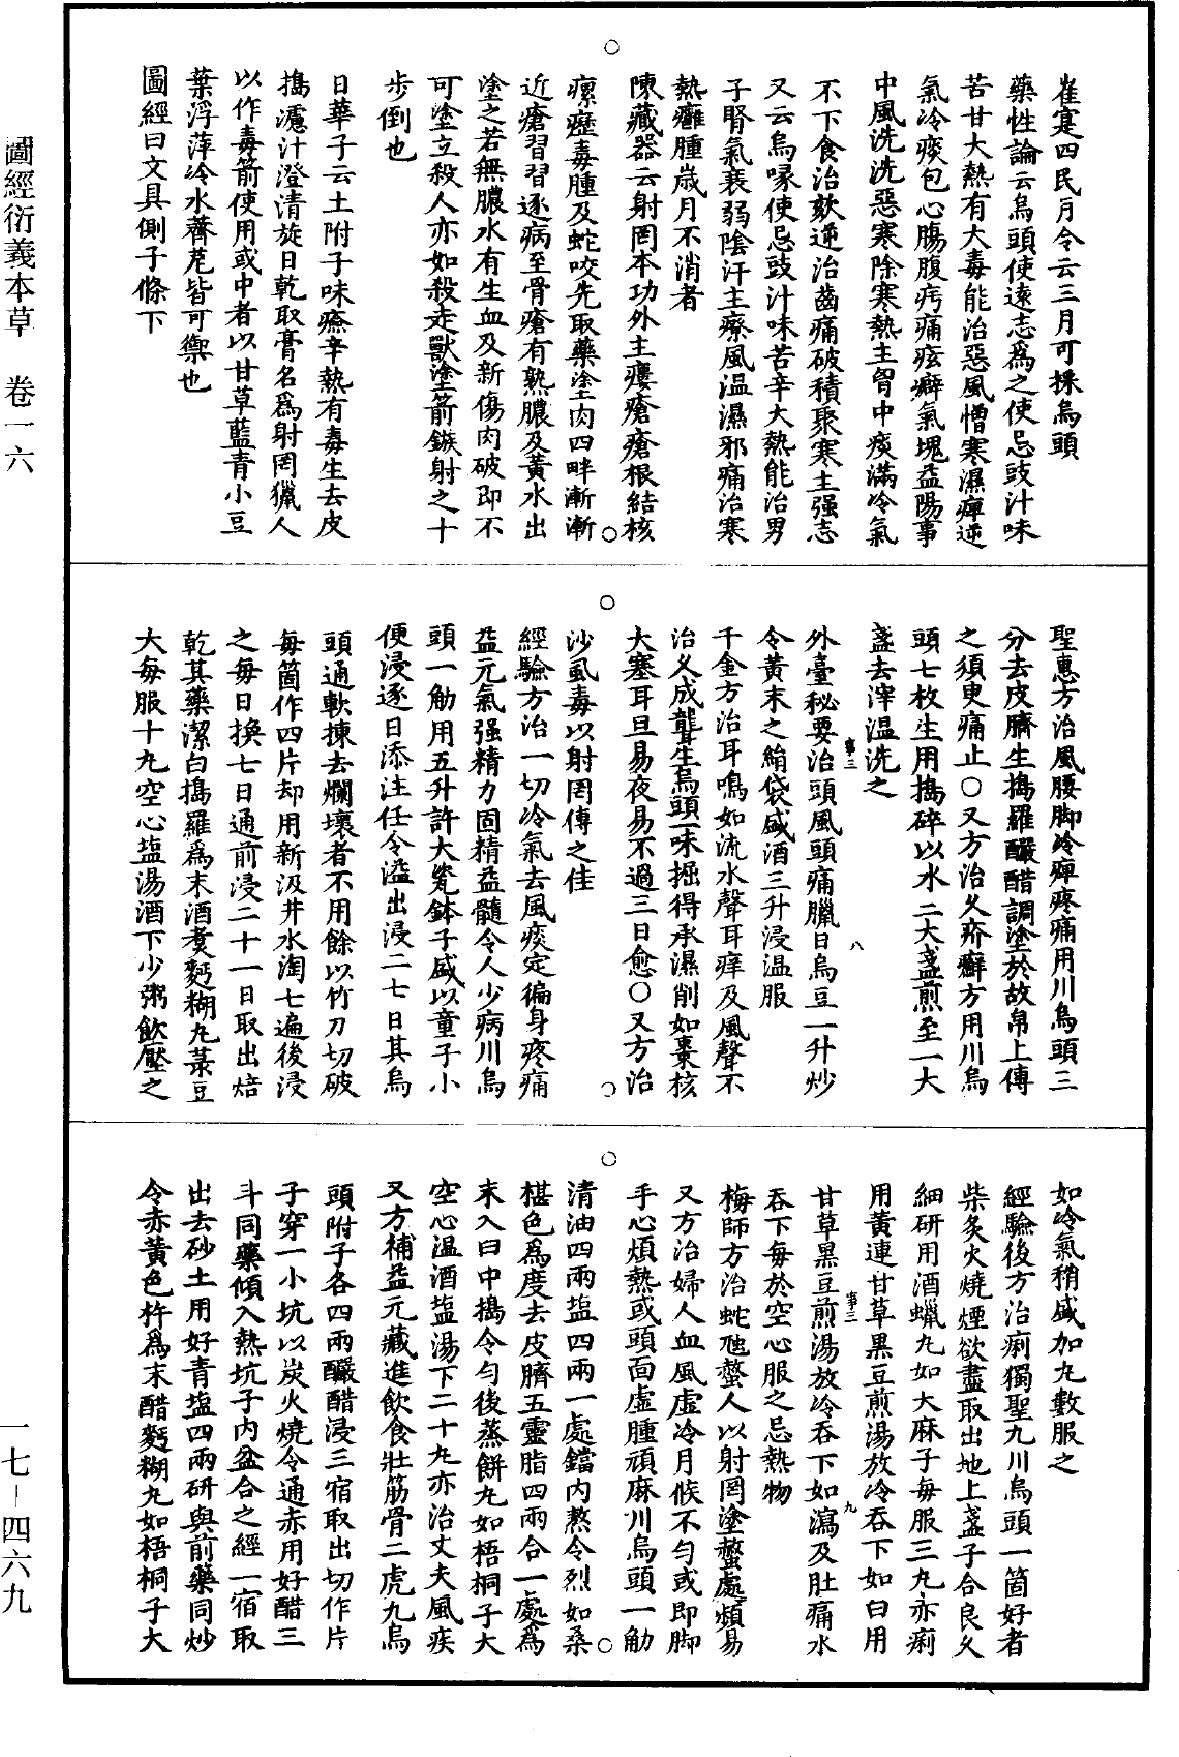 崔寔四民月令云三月可採烏頭
藥性論云烏頭使遠志為之使忌豉汁味
苦甘大熱有大毒能治惡風憎寒濕痺逆
氣冷痰包心腸腹疞痛痃癖氣塊益陽事
中風洗洗惡寒除寒熱主胷中痰滿冷氣
不下食治欬逆治齒痛破積聚寒主强志
又云烏喙使忌豉汁味苦辛大熱能治男
子腎氣衰弱陰汗主療風温濕邪痛治寒
熱癰腫歲月不消者
陳藏器云射罔本功外主瘻瘡瘡根結核
瘰癧毒腫及蛇咬先取藥塗肉四畔漸漸
近瘡習習逐病至骨瘡有熟膿及黃水出
塗之若無膿水有生血及新傷肉破即不
可塗立殺人亦如殺走獸塗箭鏃射之十
步倒也
日華子云土附子味瘱辛熱有毒生去皮
搗濾汁澄清旋日乾取膏名為射罔獵人
以作毒箭使用或中者以甘草藍青小豆
葉浮萍冷水薺苨皆可禦也
圖經曰文具側子條下
聖惠方治風腰脚冷痺疼痛用川烏頭三
分去皮臍生搗羅釅醋調塗於故帛上傅
之須更痛止○又方治久疥癬方用川烏
頭七枚生用搗碎以水二大盞煎至一大
盞去滓温洗之
外臺秘要治頭風頭痛臘日烏豆一升炒
令黃末之絹袋盛酒三升浸温服
千金方治耳鳴如流水聲耳痒及風聲不
治久成聾生烏頭一味掘得承濕削如棗核
大塞耳旦易夜易不過三日愈○又方治
沙虱毒以射罔傅之佳
經驗方治一切冷氣去風痰定徧身疼痛
益元氣强精力固精益髓令人少病川烏
頭一觔用五升許大甆鉢子盛以童子小
便浸逐日添注任令溢出浸二七日其烏
頭通軟揀去爛壞者不用餘以竹刀切破
每箇作四片却用新汲井水淘七遍後浸
之每日換七日通前浸二十一日取出焙
乾其藥潔白搗羅為末酒煑麪糊丸菉豆
大每服十丸空心塩湯酒下少粥飲壓之
如冷氣稍盛加丸數服之
經驗後方治痢獨聖丸川烏頭一箇好者
柴炙火燒煙欲盡取出地上盞子合良久
細研用酒蠟丸如大麻子每服三丸赤痢
用黃連甘草黑豆煎湯放冷吞下如白用
甘草黑豆煎湯放冷吞下如瀉及肚痛水
吞下每於空心服之忌熱物
梅師方治蛇虺螫人以射罔塗螫處頻易
又方治婦人血風虛冷月候不勻或即脚
手心煩熱或頭面虛腫頑麻川烏頭一觔
清油四兩塩四兩一處鐺內熬令烈如桑
椹色為度去皮臍五靈脂四兩合一處為
末入臼中搗令勻後蒸餅丸如梧桐子大
空心温酒塩湯下二十丸亦治丈夫風疾
又方補益元藏進飲食壯筋骨二虎丸烏
頭附子各四兩釅醋浸三宿取出切作片
子穿一小坑以炭火燒令通赤用好醋三
斗同藥傾入熱坑子內盆合之經一宿取
出去砂土用好青塩四兩研與前藥同炒
令赤黃色杵為末醋麪糊丸如梧桐子大
圖經衍義本草　卷一六
一七－四六九